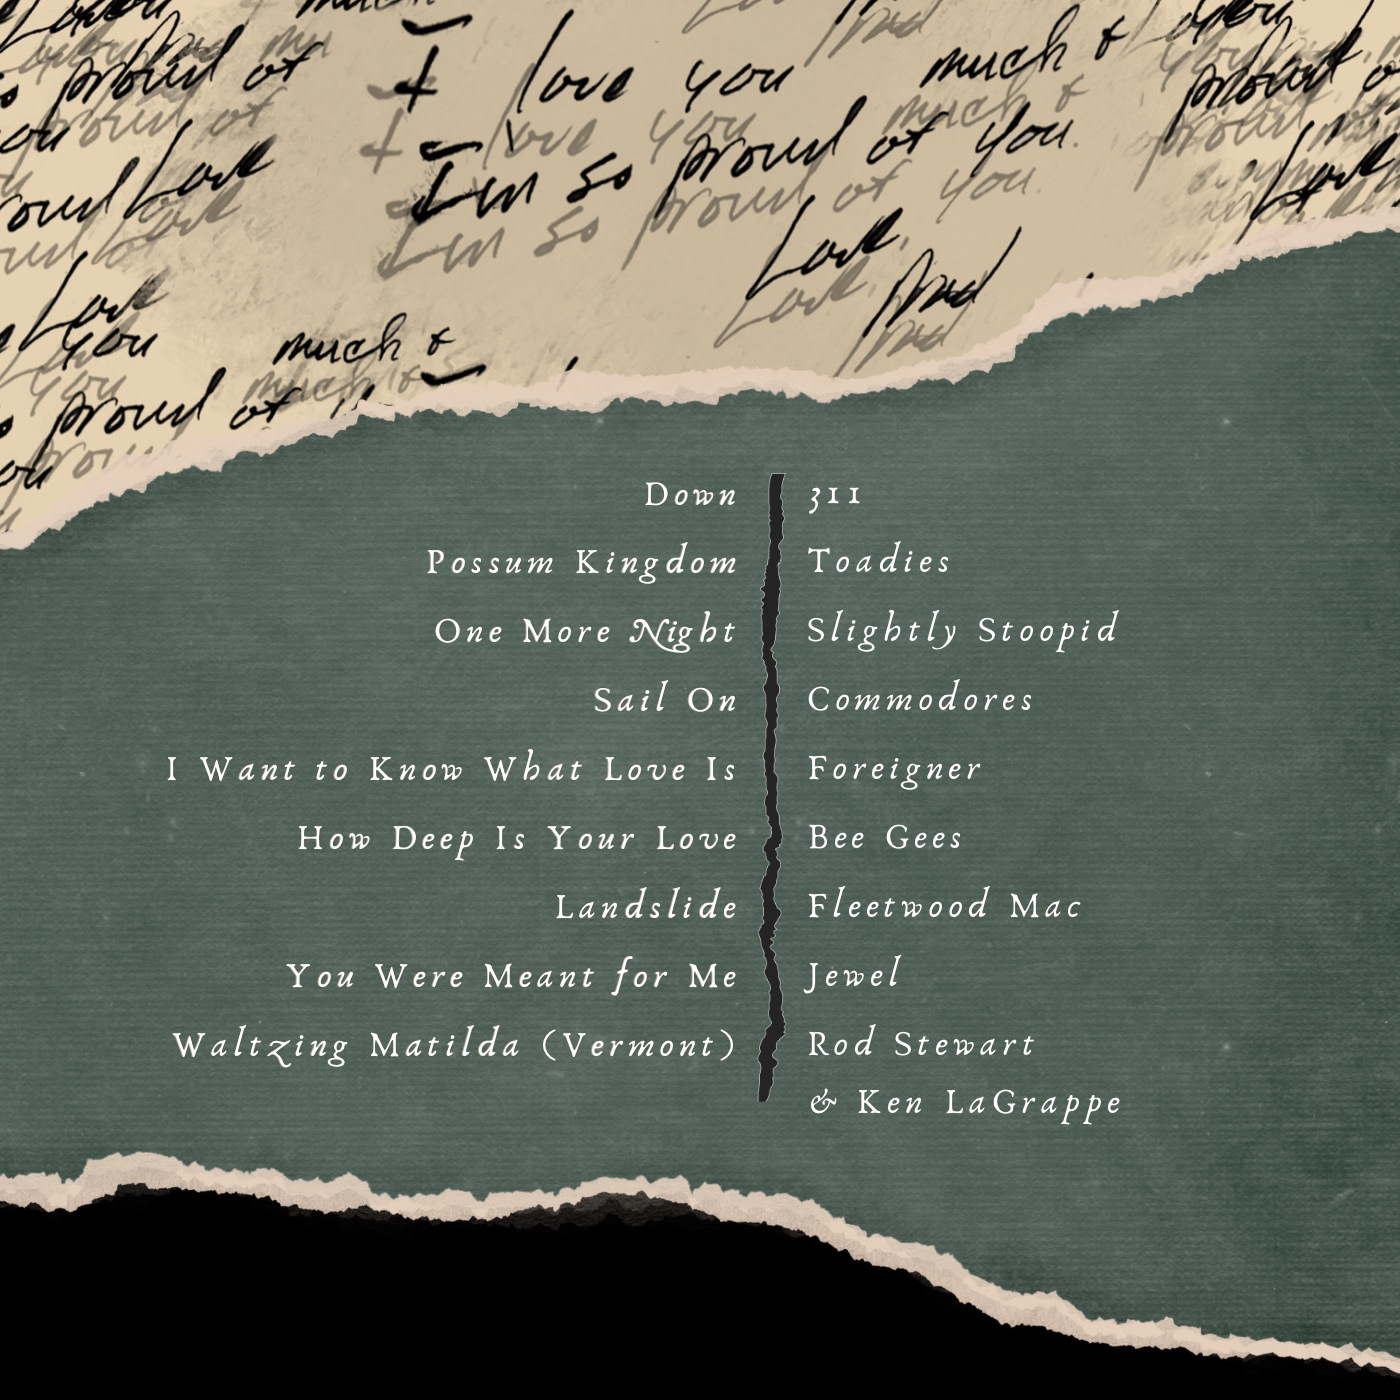 I love you much &
I'm so proud of you.
Love,
Dad
so proud of
Love
you much &
so proud of
Down 311
Possum Kingdom Toadies
One More Night Slightly Stoopid
Sail On Commodores
I Want to Know What Love Is Foreigner
How Deep Is Your Love Bee Gees
Landslide Fleetwood Mac
You Were Meant for Me Jewel
Waltzing Matilda (Vermont) Rod Stewart
& Ken LaGrappe